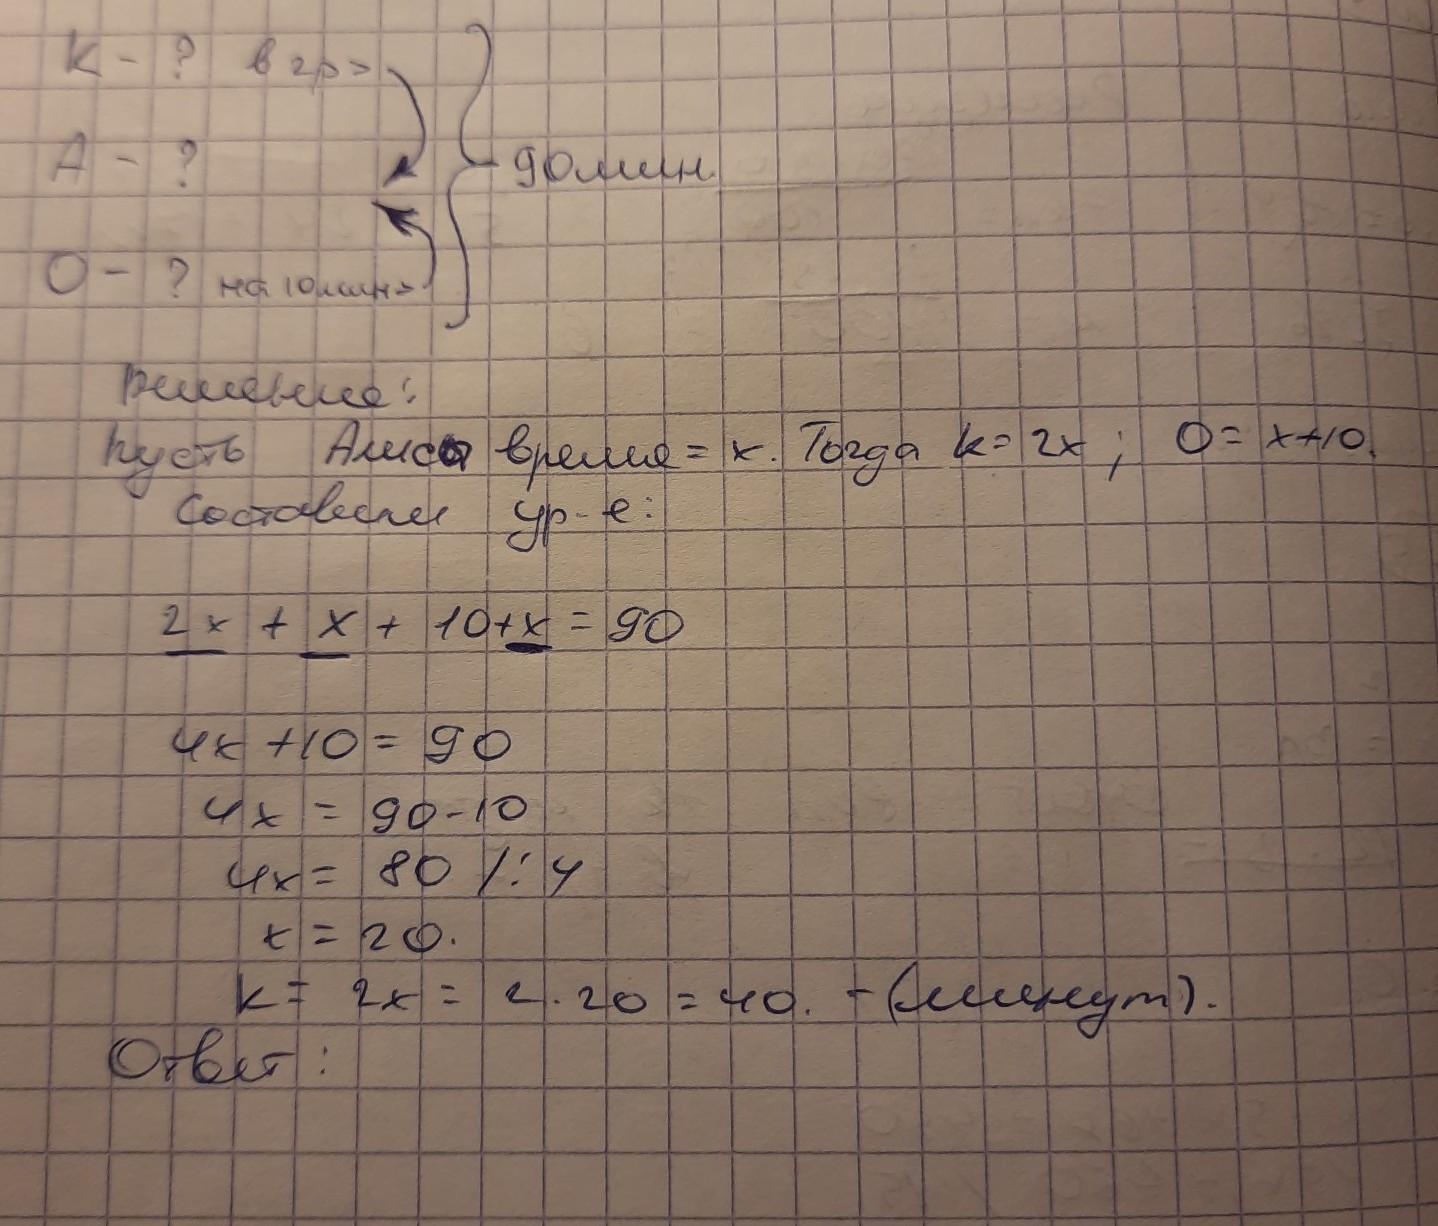 К - ? в 2р >
А - ?
90 мин.
О - ? на 10 мин >
Решение:
Пусть Алиса время = x. Тогда К = 2x ; О = x+10.
Составим ур-е:
2x + x + 10+x = 90
4x +10 = 90
4x = 90-10
4x = 80 /: 4
x = 20.
К = 2x = 2 · 20 = 40. - (минут).
Ответ :